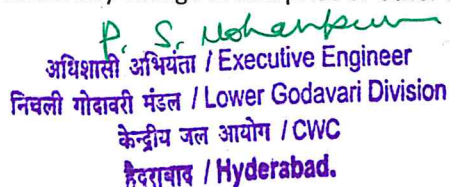 P. S. Mohanpur
अधिशासी अभियंता / Executive Engineer
निचली गोदावरी मंडल / Lower Godavari Division
केन्द्रीय जल आयोग / CWC
हैदराबाद / Hyderabad.